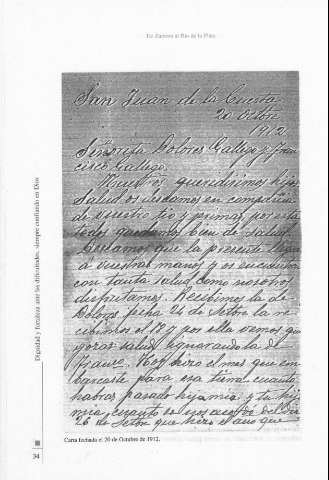 De Zamora al Río de la Plata
San Juan de la Cuesta
20 Octbre
1912
Señorita Dolores Gallego y Fran
cisco Gallego.
Nuestros queridisimos hijos
Salud os deseamos en compañia
de vuestro tio y primas, por esta
todos quedamos bien de salud.
Deseamos que la presente llegue
á vuestras manos y os encuentre
con tanta salud como nosotros
disfrutamos. Recibimos la de
Dolores fecha 24 de Setbre la re
cibimos el 18 y por ella vemos que
gozas salud aguardando la de
Hoy hizo el mes que em
barcaste para esa tierra cuanto
habras pasado hija mia y tu hijo
mia, cuanto
26 de Setbre que hizo el año que
Carta fechada el 20 de Octubre de 1912.
Dignidad y fortaleza ante las dificultades, siempre confiando en Dios
34